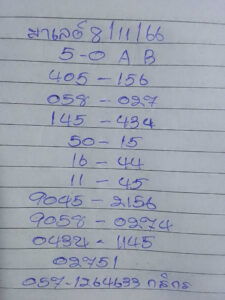 มาเลย์ 8/11/66
5-0 A B
405-156
058-027
145-434
50-15
16-44
11-45
9045-2156
9058-0274
0434-1145
02751
057-1264633